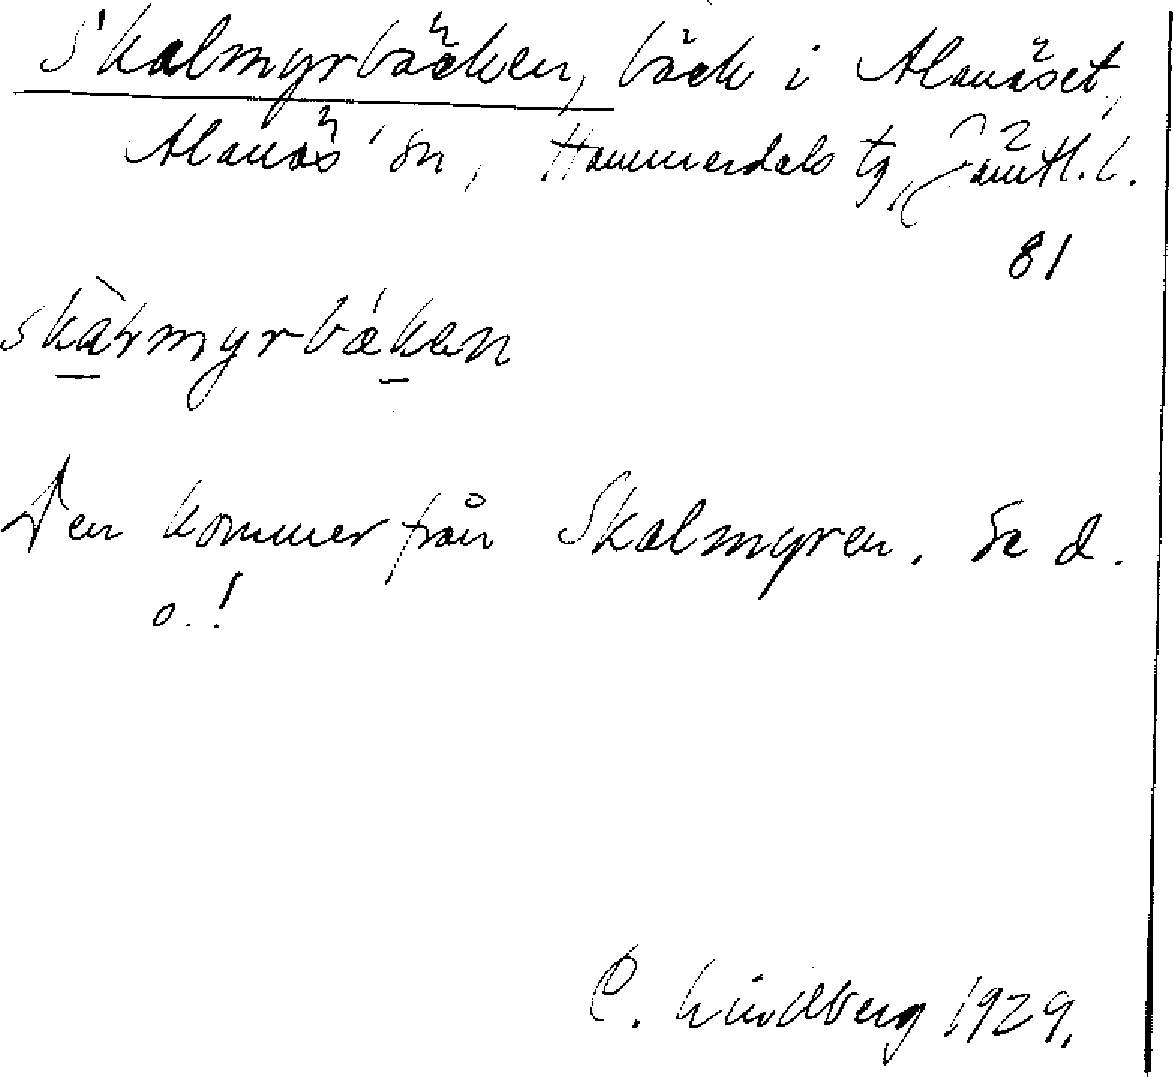 Skalmyrbäcken, bäck i Alanäset,
Alanäs sn, Hammerdals tg, Jämtl. l.
81
Den kommer från Skalmyren. Se d.
o.!
C. Lindberg 1929.